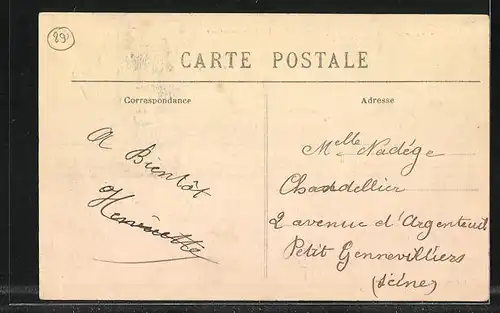 89
CARTE POSTALE
Correspondance
A Bientôt
Henriette
Adresse
Melle Nadège
Chandellier
2 avenue d'Argenteuil
Petit Gennevilliers
(Seine)